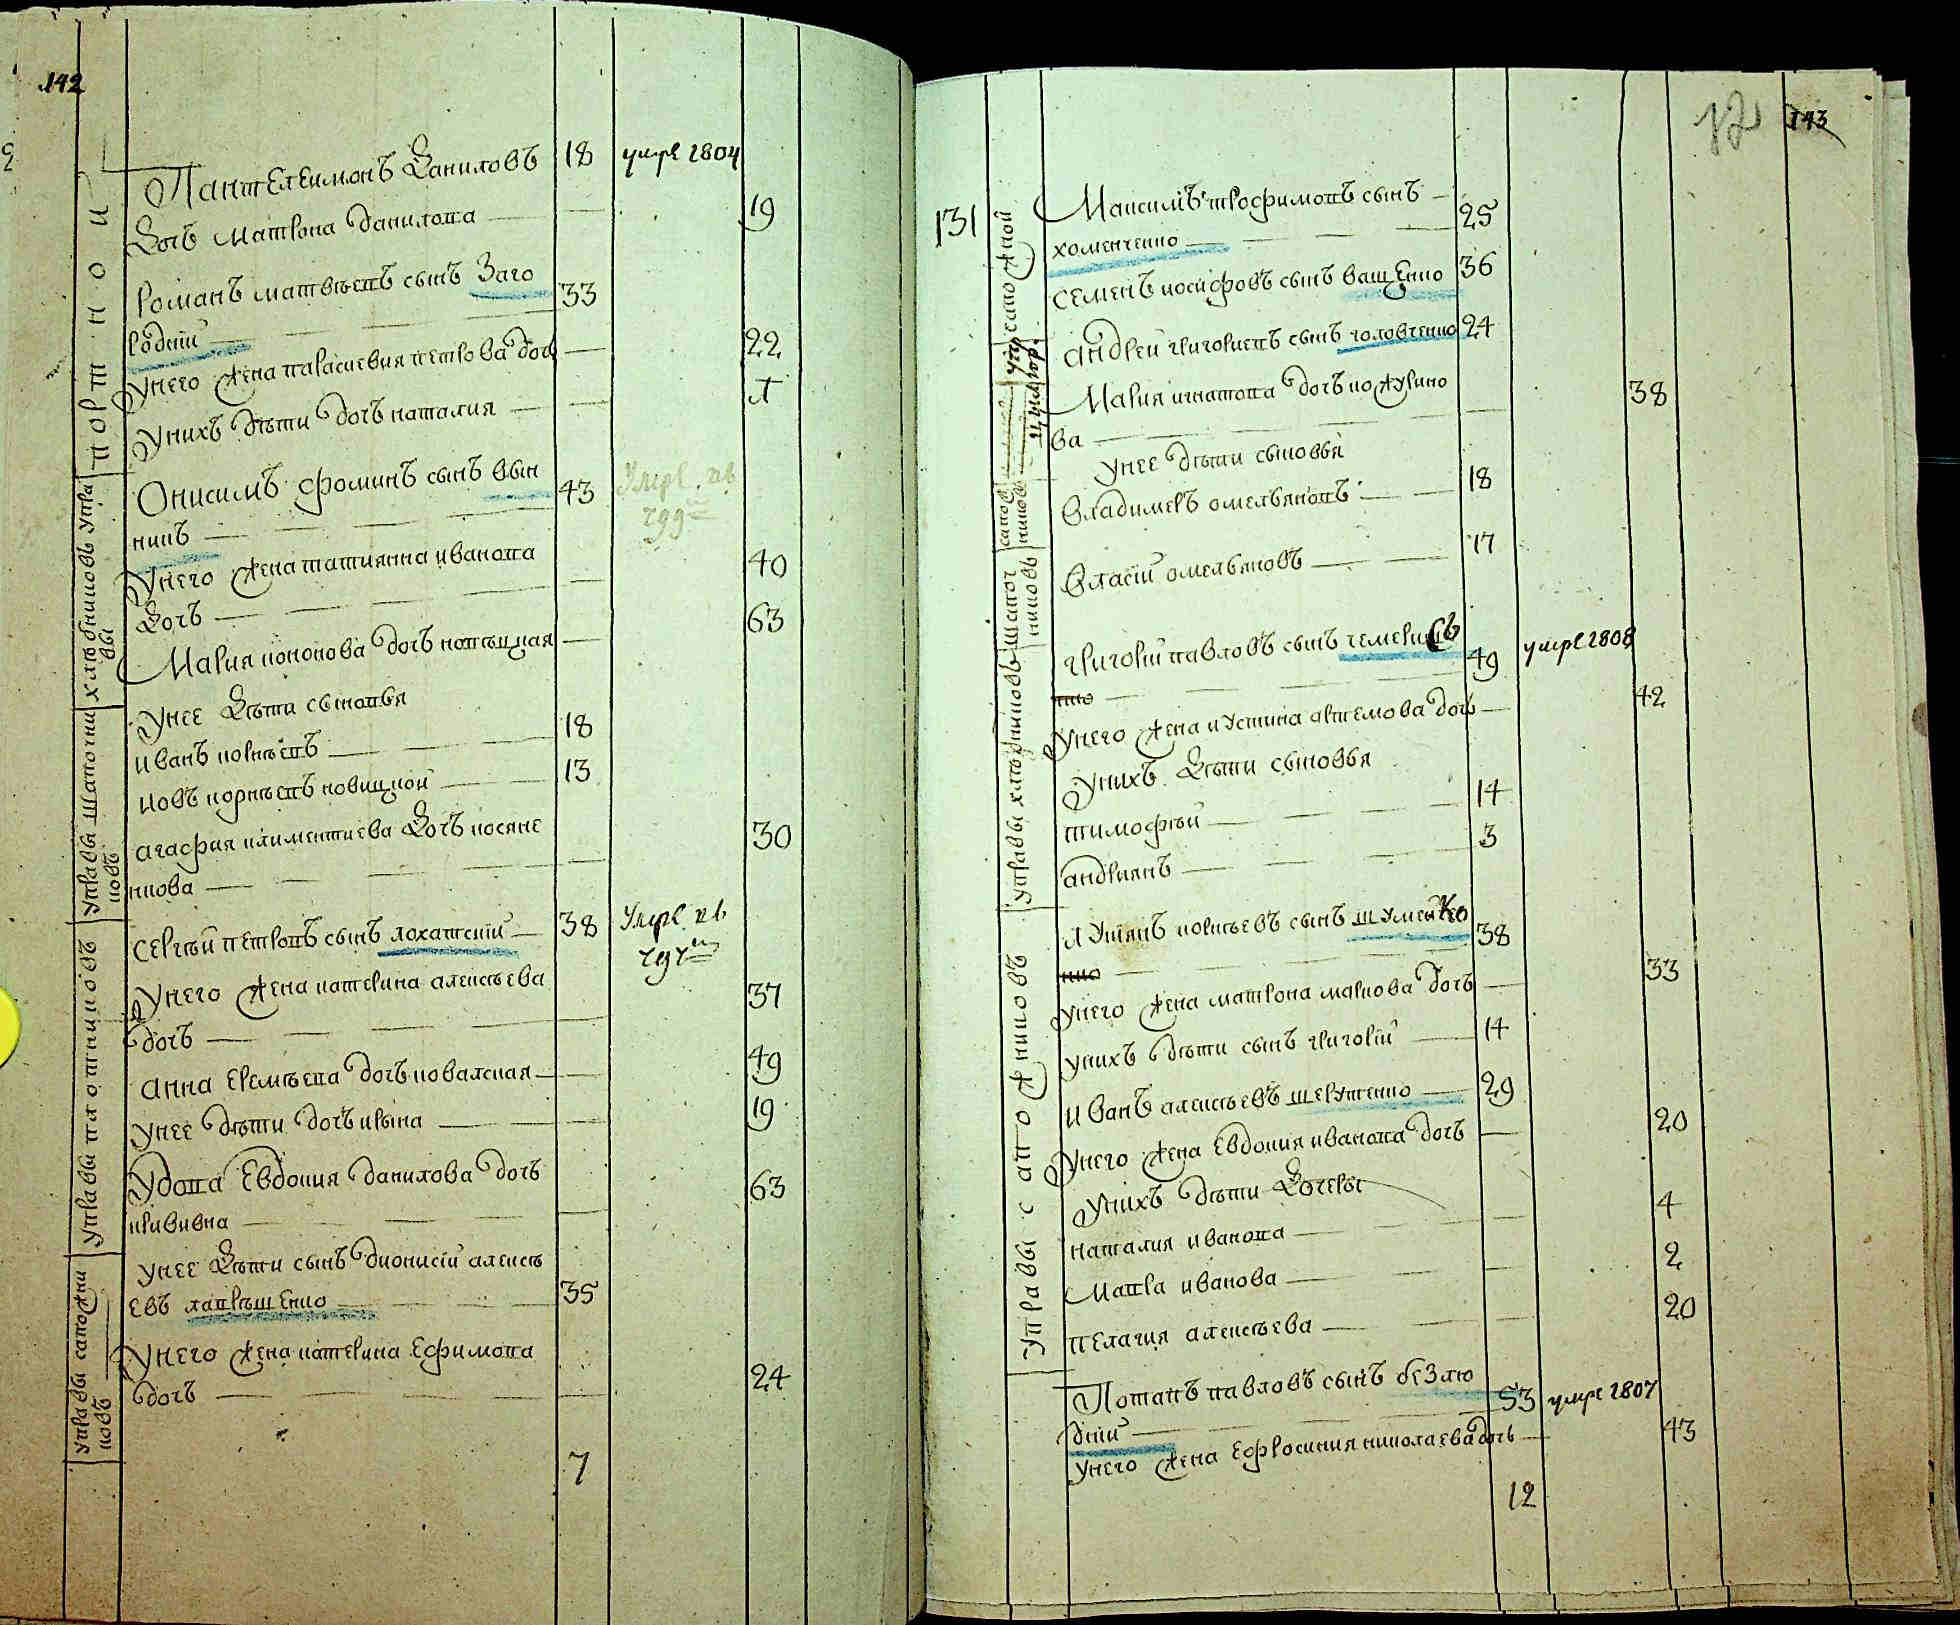 142
Портной
Пантелеимонъ Даниловъ 18 умре 1804
Дочь Матрона Данилова 19
Романъ Матвѣевъ сынъ Заго
родній 33
У него жена Параскевия Петрова дочь 22
У нихъ дѣти дочь Наталия
Управы хлѣбниковъ
Онисимъ Фоминъ сынъ Вын
никъ 43
У него жена Татиянна Иванова
Дочь 40
Мария Кононова дочь 63
У нее Дѣти сыновья
Управы шапошниковъ
Иванъ Корнѣевъ 18
Иовъ Корнѣевъ Новицкой 13
Агафия Климентиева Дочь Косяне
нкова 30
Управы плотниковъ
Сергѣй Петровъ сынъ Лохатский 38 Умре
У него жена Катерина Алексѣева
дочь 37
Анна Еремѣева дочь Ковалская 49
У нее дѣти дочь Ирина 19
Удова Евдокия Данилова дочь
Крививна 63
Управы сапожниковъ
У нее Дѣти сынъ Дионисій Алексѣ
евъ Лапрѣшенко 35
У него жена Катерина Ефимова
дочь 24
7
143
131
Максимъ Трофимовъ сынъ
Хоменченко 25
Семенъ Иосифовъ сынъ Ващенко 36
Андрей Григориевъ сынъ Головченко 24
Мария Игнатова дочь Кожурино
ва 38
У нее дѣти сыновья
Владимеръ Омельяновъ 18
Власій Омельяновъ 17
Управы хлѣбниковъ
Григорій Павловъ сынъ 49 умре 1808
У него жена Иустина Артемова дочь 42
У нихъ Дѣти сыновья
Тимофѣй 14
Андриянъ 3
Управы сапожниковъ
Лукіянъ Корнѣевъ сынъ Шуменко 38
У него жена Матрона Маркова дочь 33
У нихъ дѣти сынъ Григорій 14
Иванъ Алексѣевъ Шерутенко 29
У него жена Евдокия Иванова дочь 20
У нихъ дѣти Дочеры
Наталия Иванова 4
Мавра Иванова 2
Пелагия Алексѣева 20
Потапъ Павловъ сынъ Безлю
дній 53 умре 1807
У него жена Ефросиния Николаева дочь 43
12